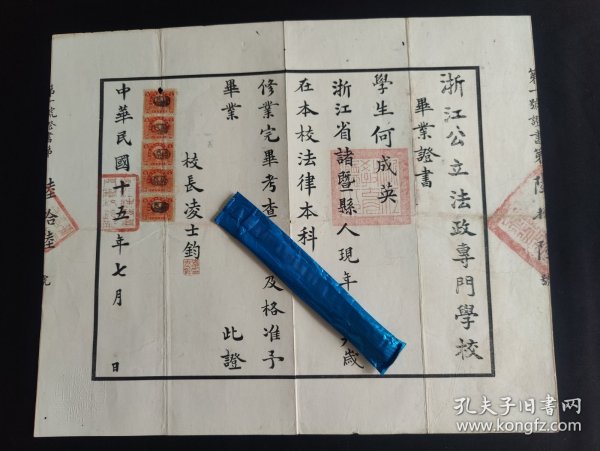 浙江公立法政專門學校
畢業證書
學生何成英
浙江省諸暨縣人現年 歲
在本校法律本科
修業完畢考查 及格准予
畢業 此證
校長凌士鈞
中華民國十五年七月 日
陸拾陸
孔夫子旧书网
www.kongfz.com